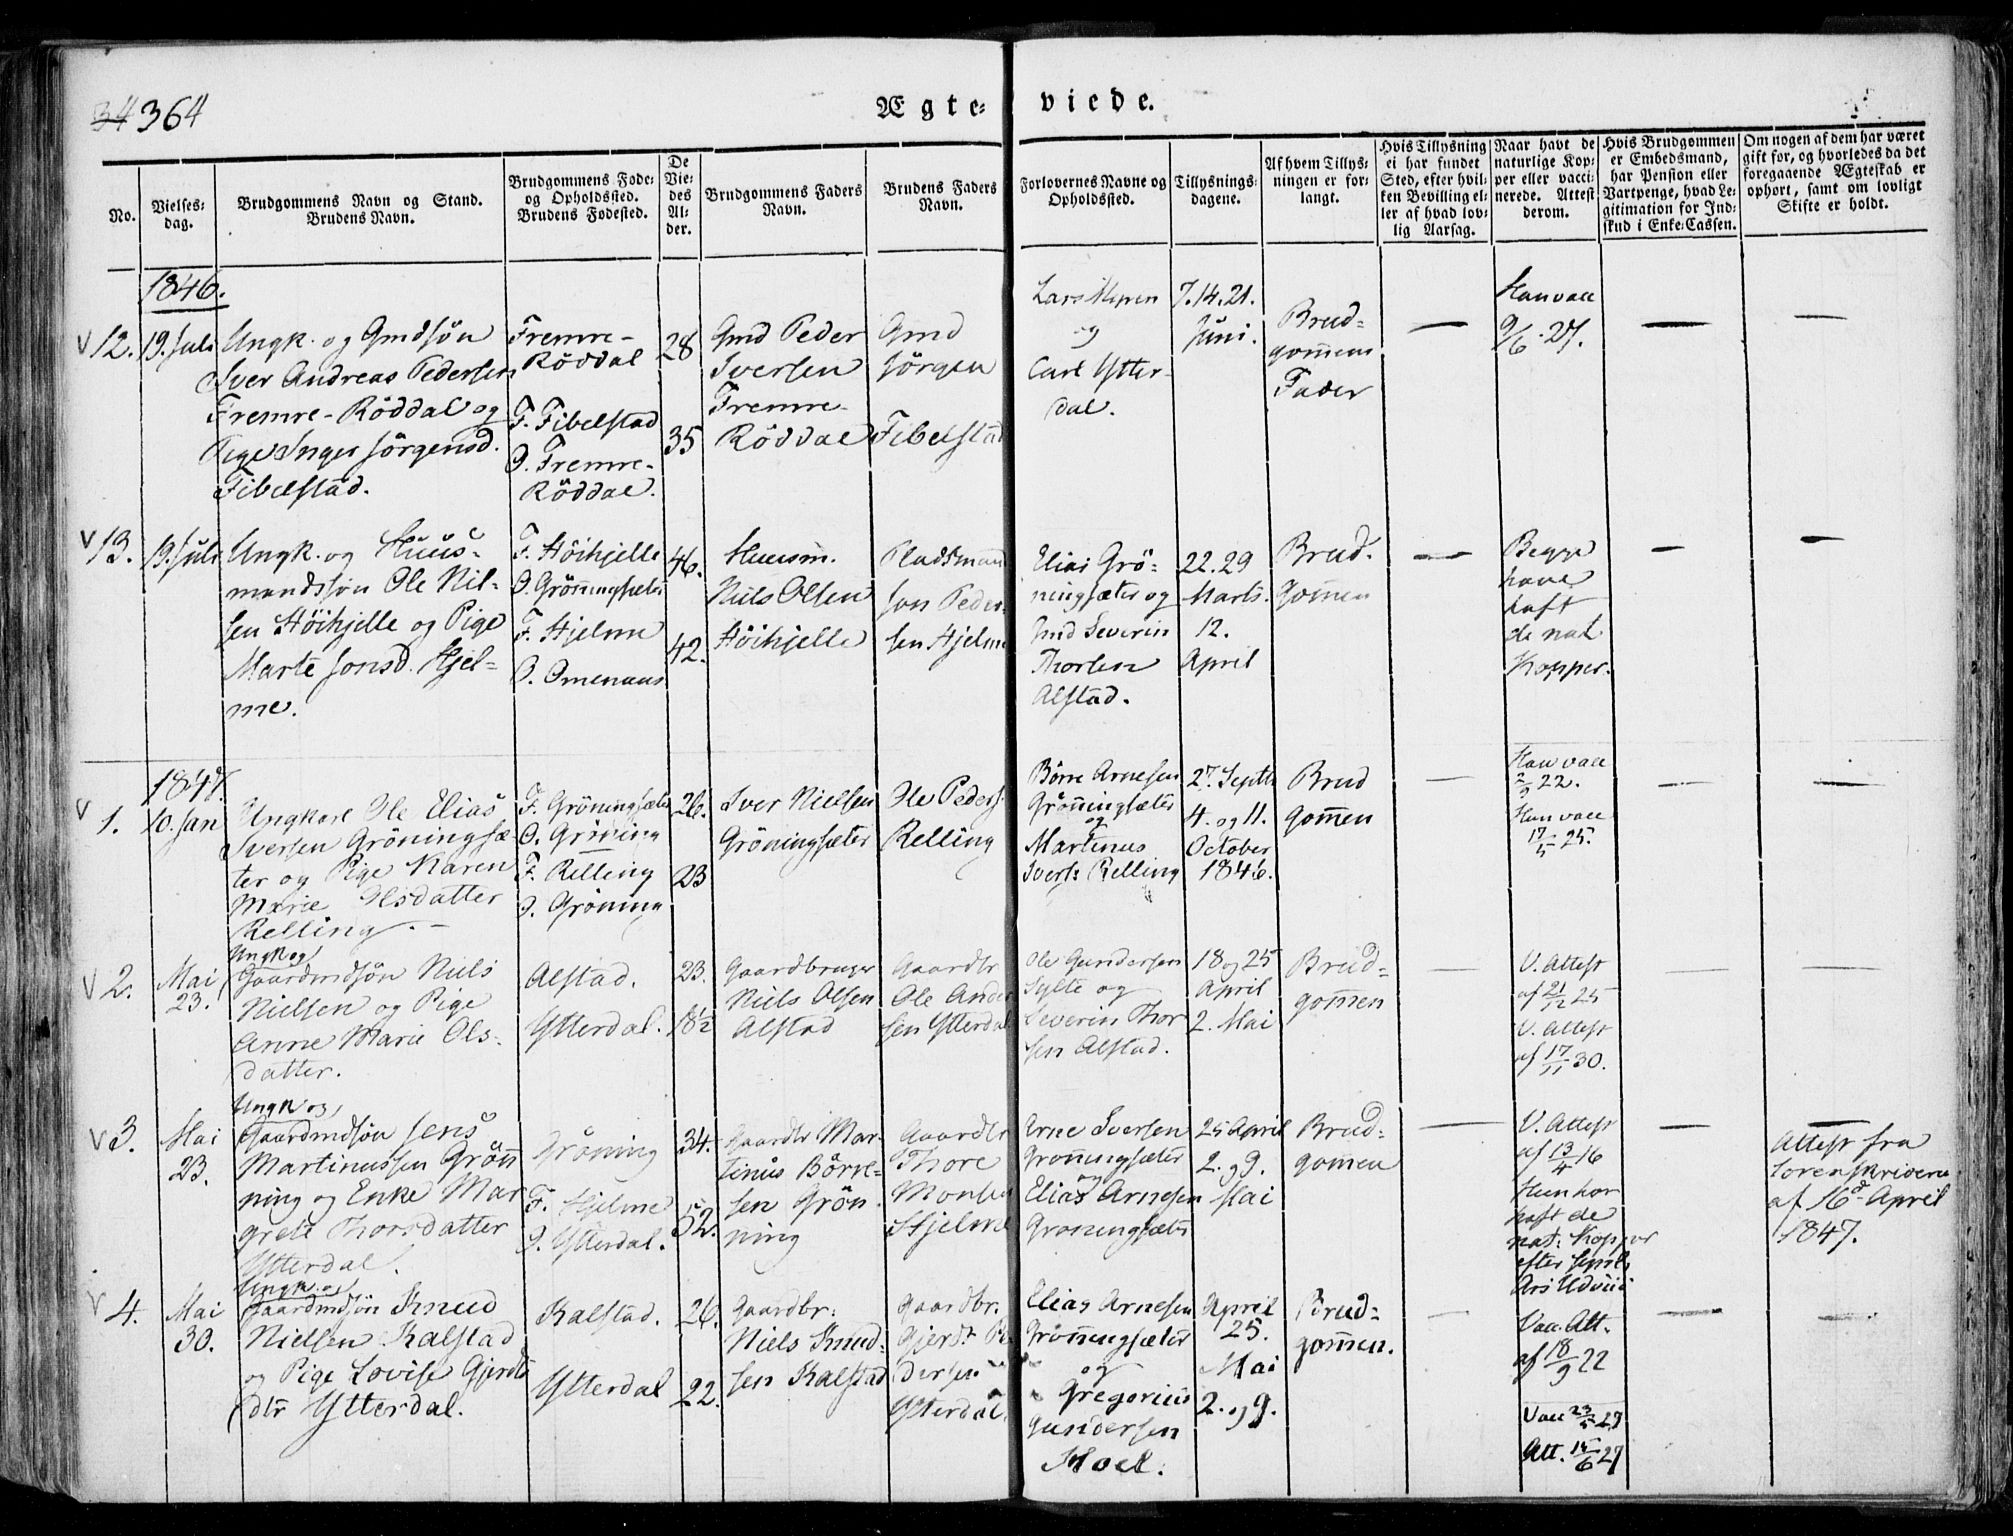 34 364
Ægte-viede.
No.
Vielses-
dag.
Brudgommens Navn og Stand.
Brudens Navn.
Brudgommens Føde-
og Opholdssted.
Brudens Fødested.
De
Vie-
des
Al-
der.
Brudgommens Faders
Navn.
Brudens Faders
Navn.
Forlovernes Navne og
Opholdssted.
Tillysnings-
dagene.
Af hvem Tillys-
ningen er for-
langt.
Hvis Tillysning
ei har fundet
Sted, efter hvil-
ken Bevilling el-
ler af hvad lov-
lig Aarsag.
Naar havt de
naturlige Kop-
per eller vacci-
nerede. Attest
derom.
Hvis Brudgommen
er Embedsmand,
har Pension eller
Vartpenge, hvad Le-
gitimation for Ind-
skud i Enke-Cassen.
Om nogen af dem har været
gift før, og hvorledes da det
foregaaende Ægteskab er
ophørt, samt om lovligt
Skifte er holdt.
1846.
V 12.
19. Juli
Ungk. og Gmdsön
Iver Andreas Pedersen
Fremre-Röddal og
Pige Inger Jörgensd.
Fibelstad.
Fremre-
Röddal
F. Fibelstad
O. Fremre-
Röddal.
28
35
Gmd Peder
Iversen
Fremre-
Röddal
Gmd
Jörgen
Fibelstad
Lars
og
Carl Ytter-
dal.
7. 14. 21.
Juni.
Brud-
gomens
Fader
Han vacc
9/6 - 27.
V 13.
19. Juli
Ungk. og Huus-
mandssön Ole Nil-
sen Höihjelle og Pige
Marte Jonsd. Hjel-
me.
F. Höihjelle
O. Gröningsæter
F. Hjelme
O. Omenaas
46.
42.
Huusm.
Niels Olsen
Höihjelle
Pladsmand
Jon Peder-
sen Hjelme
Elias Grö-
ningsæter og
Gmd Severin
Thorsen
Alstad.
22. 29
Marts.
12.
April
Brud-
gomen
Begge
have
haft
de nat
Kopper.
1847.
V 1.
10. Jan
Ungkarl Ole Elias
Iversen Gröningsæ-
ter og Pige Karen
Marie Olsdatter
Relling. -
F. Gröningsæter
O. Gröning
F. Relling
O. Gröning
26.
23
Iver Nielsen
Gröningsæter
Ole Peders.
Relling
Börre Arnesen
Gröningsæter
og
Martinus
Ivers: Relling
27. Septb
4. og 11.
October
1846.
Brud
gomen
Han vacc
2/9 22.
Hun vacc
17/5 25.
V 2.
Mai
23.
Ungk og
Gaardmdsön Niels
Nielsen og Pige
Anne Marie Ols-
datter.
Alstad.
Ytterdal.
23.
18½
Gaardbruger
Niels Olsen
Alstad
Gaardbr
Ole Ander
sen Ytterdal
Ole Gundersen
Sylte og
Severin Thor
sen Alstad.
18 og 25
April
2. Mai
Brud-
gomen
V. Attest
af 21/12 25
V. Attest
af 17/11 30.
V 3.
Mai
23.
Ungk og
Gaardmdsön Jens
Martinussen Grön
ning og Enke Mar
grete Thorsdatter
Ytterdal.
Gröning
F. Hjelme
O. Ytterdal.
34.
52.
Gaardbr Mar-
tinus Börre-
sen Grön
ning
Gaardbr
Thore
Monsen
Hjelme
Arne Iversen
Gröningsæter
og
Elias Arnesen
Gröningsæter
25 April
2. og 9.
Mai
Brud-
gomen
V. Attest
af 13/4 16
Hun har
haft de
nat: Kopper
efter
Ars Udviis
Attest fra
Sorenskriveren
af 16d April
1847.
V 4.
Mai
30.
Ungk. og
Gaardmdsön Knud
Nielsen Kalstad
og Pige Lovise Gjerds
dtr Ytterdal.
Kalstad.
Ytterdal
26.
22.
Gaardbr.
Niels Knud-
sen Kalstad
Gaardbr.
Gjerdt Pe
dersen
Ytterdal.
Elias Arnesen
Gröningsæter
og
Gregorius
Gundersen
Hoel.
April
25.
Mai
2. og 9.
Brud-
gomen.
Vacc. Att.
af 18/9 22
Vacc 23/5 27
Att. 15/6 27